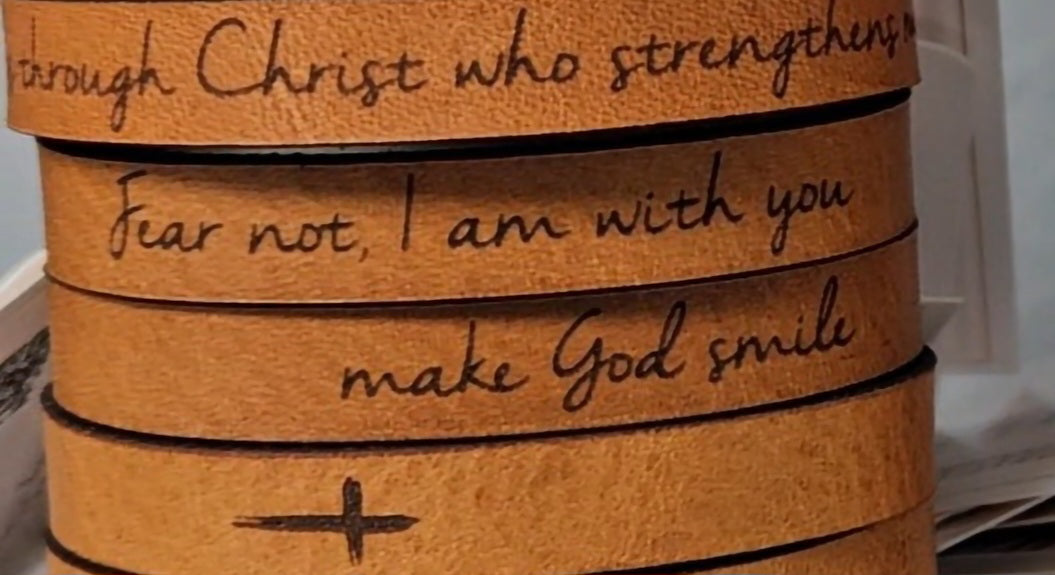 through Christ who strengthens
Fear not, I am with you
make God smile